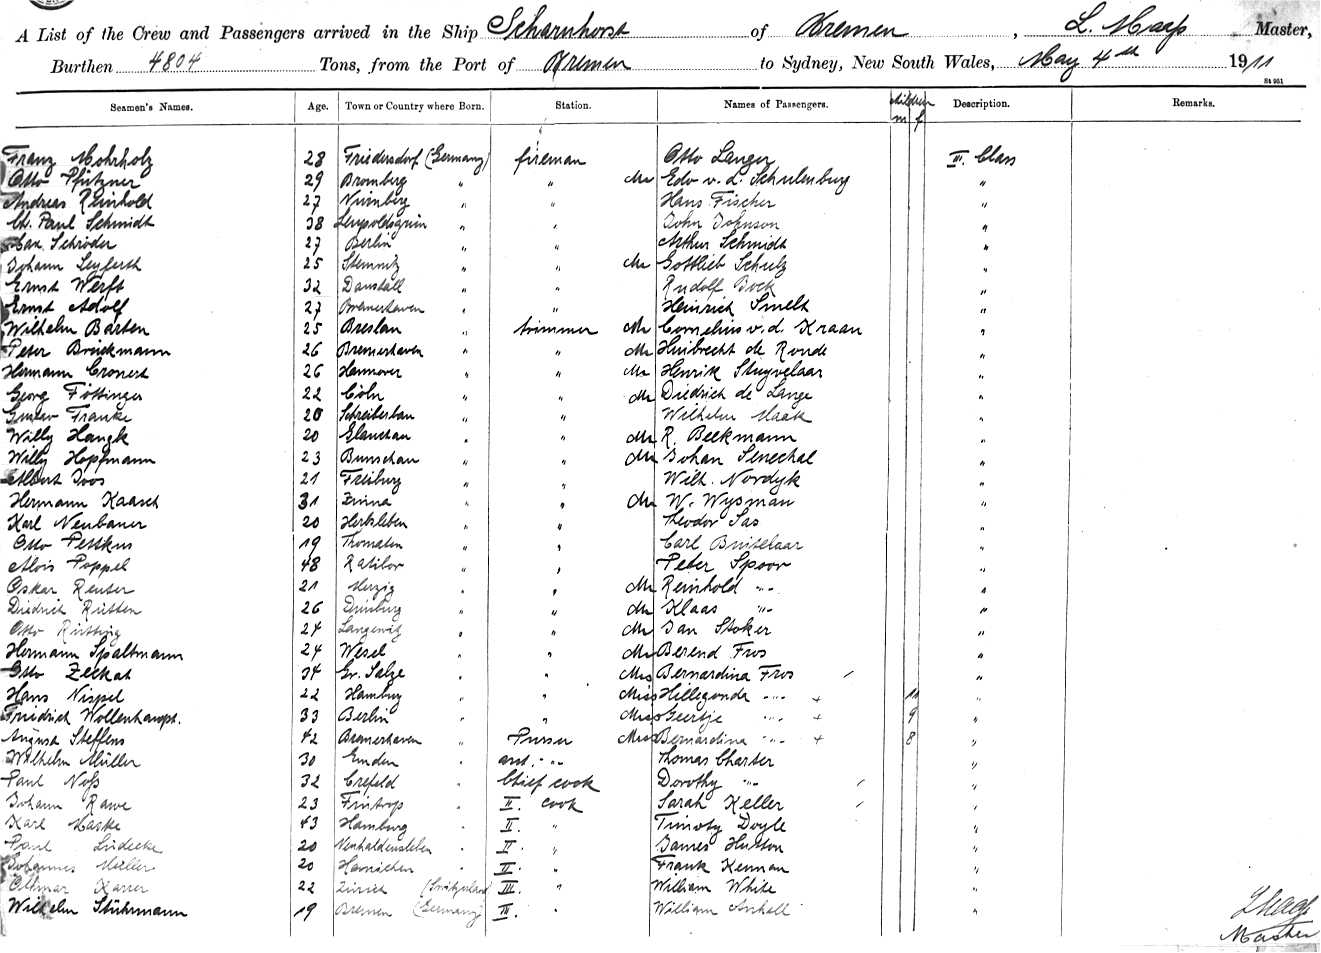 A List of the Crew and Passengers arrived in the Ship Scharnhorst of Bremen, L. Maass Master,
Burthen 4804 Tons, from the Port of Bremen to Sydney, New South Wales, May 4th 1911
St 951
Seamen's Names. Age. Town or Country where Born. Station. Names of Passengers. children m f Description. Remarks.
Franz Mohrholz 28 Friedersdorf (Germany) fireman Otto Langer III. Class
Otto Pfitzner 29 Bromberg " " Mr Edo v. d. Schulenburg "
Andreas Reinhold 27 Nürnberg " " Hans Fischer "
Paul Schmidt 38 Leupoldsgrün " " John Johnson "
Max Schröder 27 Berlin " " Arthur Schmidt "
Johann Seyferth 25 " " Mr Gottlieb Schulz "
Ernst Werft 32 " " Rudolf Bock "
Ernst Adolf 27 Bremerhaven " " Heinrich Smelt "
Wilhelm Barten 25 Breslau " trimmer Mr Cornelius v. d. Kraan "
Peter Brückmann 26 Bremerhaven " " Mr Huibrecht de Ronde "
Hermann Cronert 26 Hannover " " Mr Henrik Stuyvelaar "
Georg Föttinger 22 Cöln " " Mr Diedrich de Lange "
Gustav Franke 20 Schreiberhau " " Wilhelm Maak "
Willy Hangk 20 Glauchau " " Mr R. Beekmann "
Willy Hoffmann 23 Bunschau " " Mr Johan Senechal "
Albert Joos 21 Freiburg " " Wilh. Nordyk "
Hermann Kaasch 31 Zinna " " Mr W. Wysman "
Karl Neubauer 20 Herbsleben " " Theodor Sas "
Otto Petskus 19 " " Carl Buitelaar "
Alois Poppel 48 Ratibor " " Peter Spoor "
Oskar Reuter 21 Merzig " " Mr Reinhold " "
Diedrich Rütten 26 Duisburg " " Mr Klaas " "
Otto Rütting 24 " " Mr Jan Stoker "
Hermann Spaltmann 24 Wesel " " Mr Berend Fros "
Otto Zeckat 34 Gr. Salze " " Mrs Bernardina Fros "
Hans Nispel 22 Hamburg " " Miss Hillegonda " + 11 "
Friedrich Wollenhaupt. 33 Berlin " " Miss Geertje " + 9 "
August Steffens 42 Bremerhaven " Purser Miss Bernardina " + 8 "
Wilhelm Müller 30 Emden " asst. " Thomas Charter "
Paul Noß 32 Crefeld " Chief cook Dorothy " "
Johann Rawe 23 Frintrop " II. cook Sarah Keller "
Karl Maske 43 Hamburg " II. " Timoty Doyle "
Paul Lüdecke 20 Neuhaldensleben " II. " James Hutton "
Johannes Müller 20 Hainichen " II. " Frank Kennan "
Ottmar Karrer 22 Zürich (Switzerland) III. " William White "
Wilhelm Stührmann 19 Bremen (Germany) III. " William "
L Maass
Master